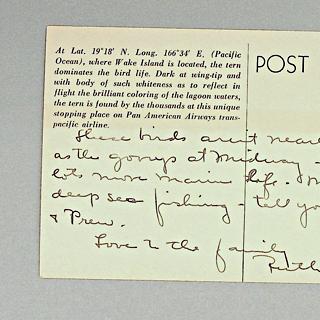 At Lat. 19°18' N. Long. 166°34' E. (Pacific
Ocean), where Wake Island is located, the tern
dominates the bird life. Dark at wing-tip and
with body of such whiteness as to reflect in
flight the brilliant coloring of the lagoon waters,
the tern is found by the thousands at this unique
stopping place on Pan American Airways trans-
pacific airline.
POST
These birds aren't near
as the gonnys at Midway -
lots more marine life.
deep sea fishing - tell yo
& Prew.
Love to the family
Ruth